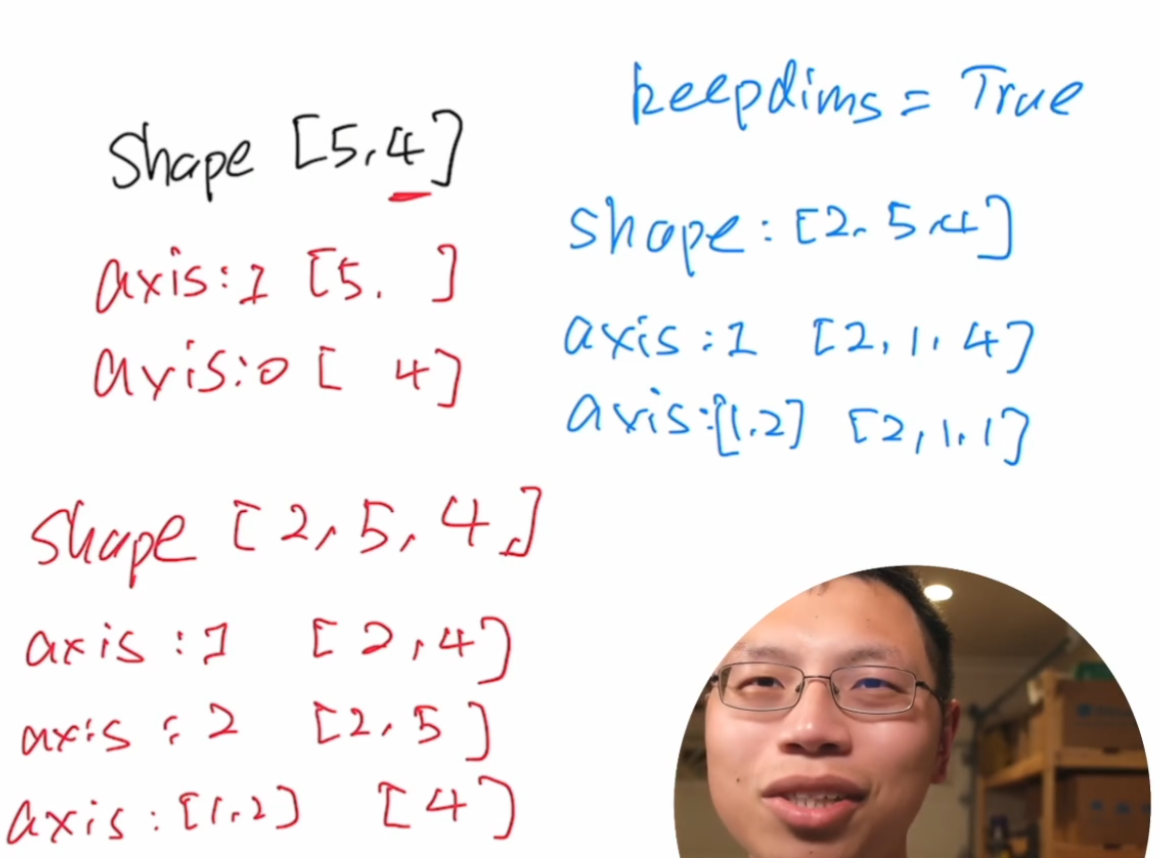 Shape [5,4]
axis:1 [5. ]
axis:0 [ 4]
shape [2,5,4,]
axis:1 [2,4]
axis:2 [2,5]
axis:[1.2] [4]
keepdims = True
shape: [2.5.4]
axis:1 [2,1.4]
axis:[1.2] [2,1.1]